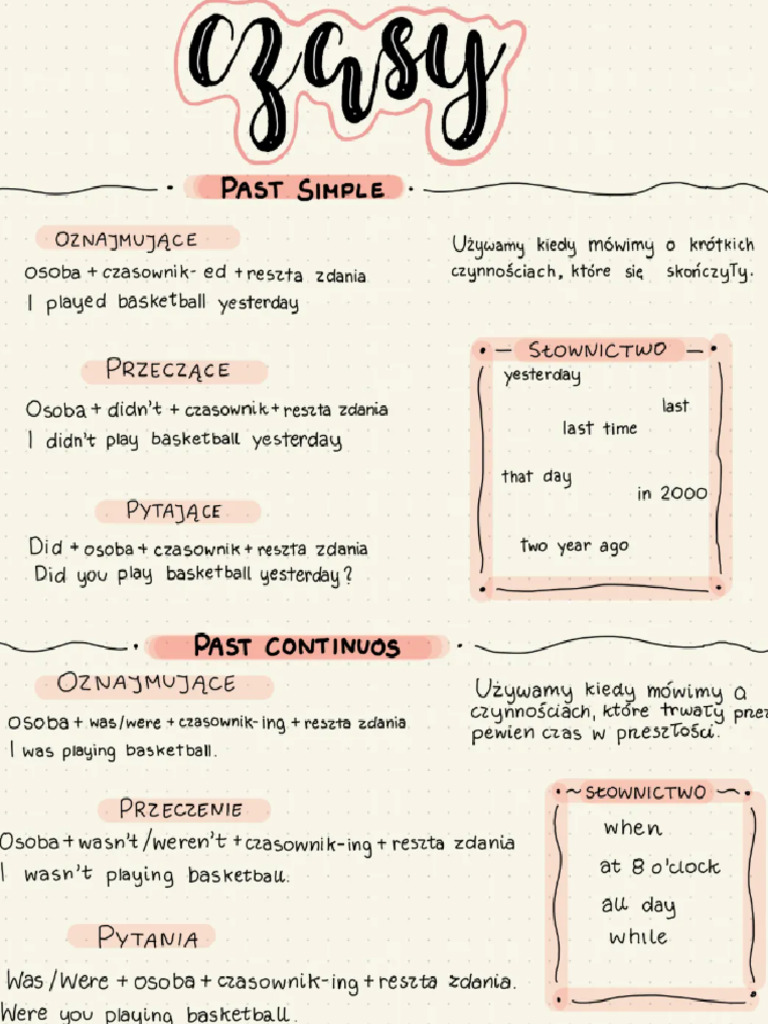 czasy
PAST SIMPLE
OZNAJMUJĄCE
osoba + czasownik- ed + reszta zdania
I played basketball yesterday
Używamy kiedy mówimy o krótkich
czynnościach, które się skończyły.
PRZECZĄCE
Osoba + didn't + czasownik + reszta zdania
I didn't play basketball yesterday
PYTAJĄCE
Did + osoba + czasownik + reszta zdania
Did you play basketball yesterday?
SŁOWNICTWO
yesterday
last
last time
that day
in 2000
two year ago
PAST CONTINUOS
OZNAJMUJĄCE
osoba + was/were + czasownik-ing + reszta zdania
I was playing basketball.
Używamy kiedy mówimy o
czynnościach, które trwały prze
pewien czas w przeszłości.
PRZECZENIE
Osoba + wasn't/weren't + czasownik-ing + reszta zdania
I wasn't playing basketball.
PYTANIA
Was/Were + osoba + czasownik-ing + reszta zdania.
Were you playing basketball.
SŁOWNICTWO
when
at 8 o'clock
all day
while